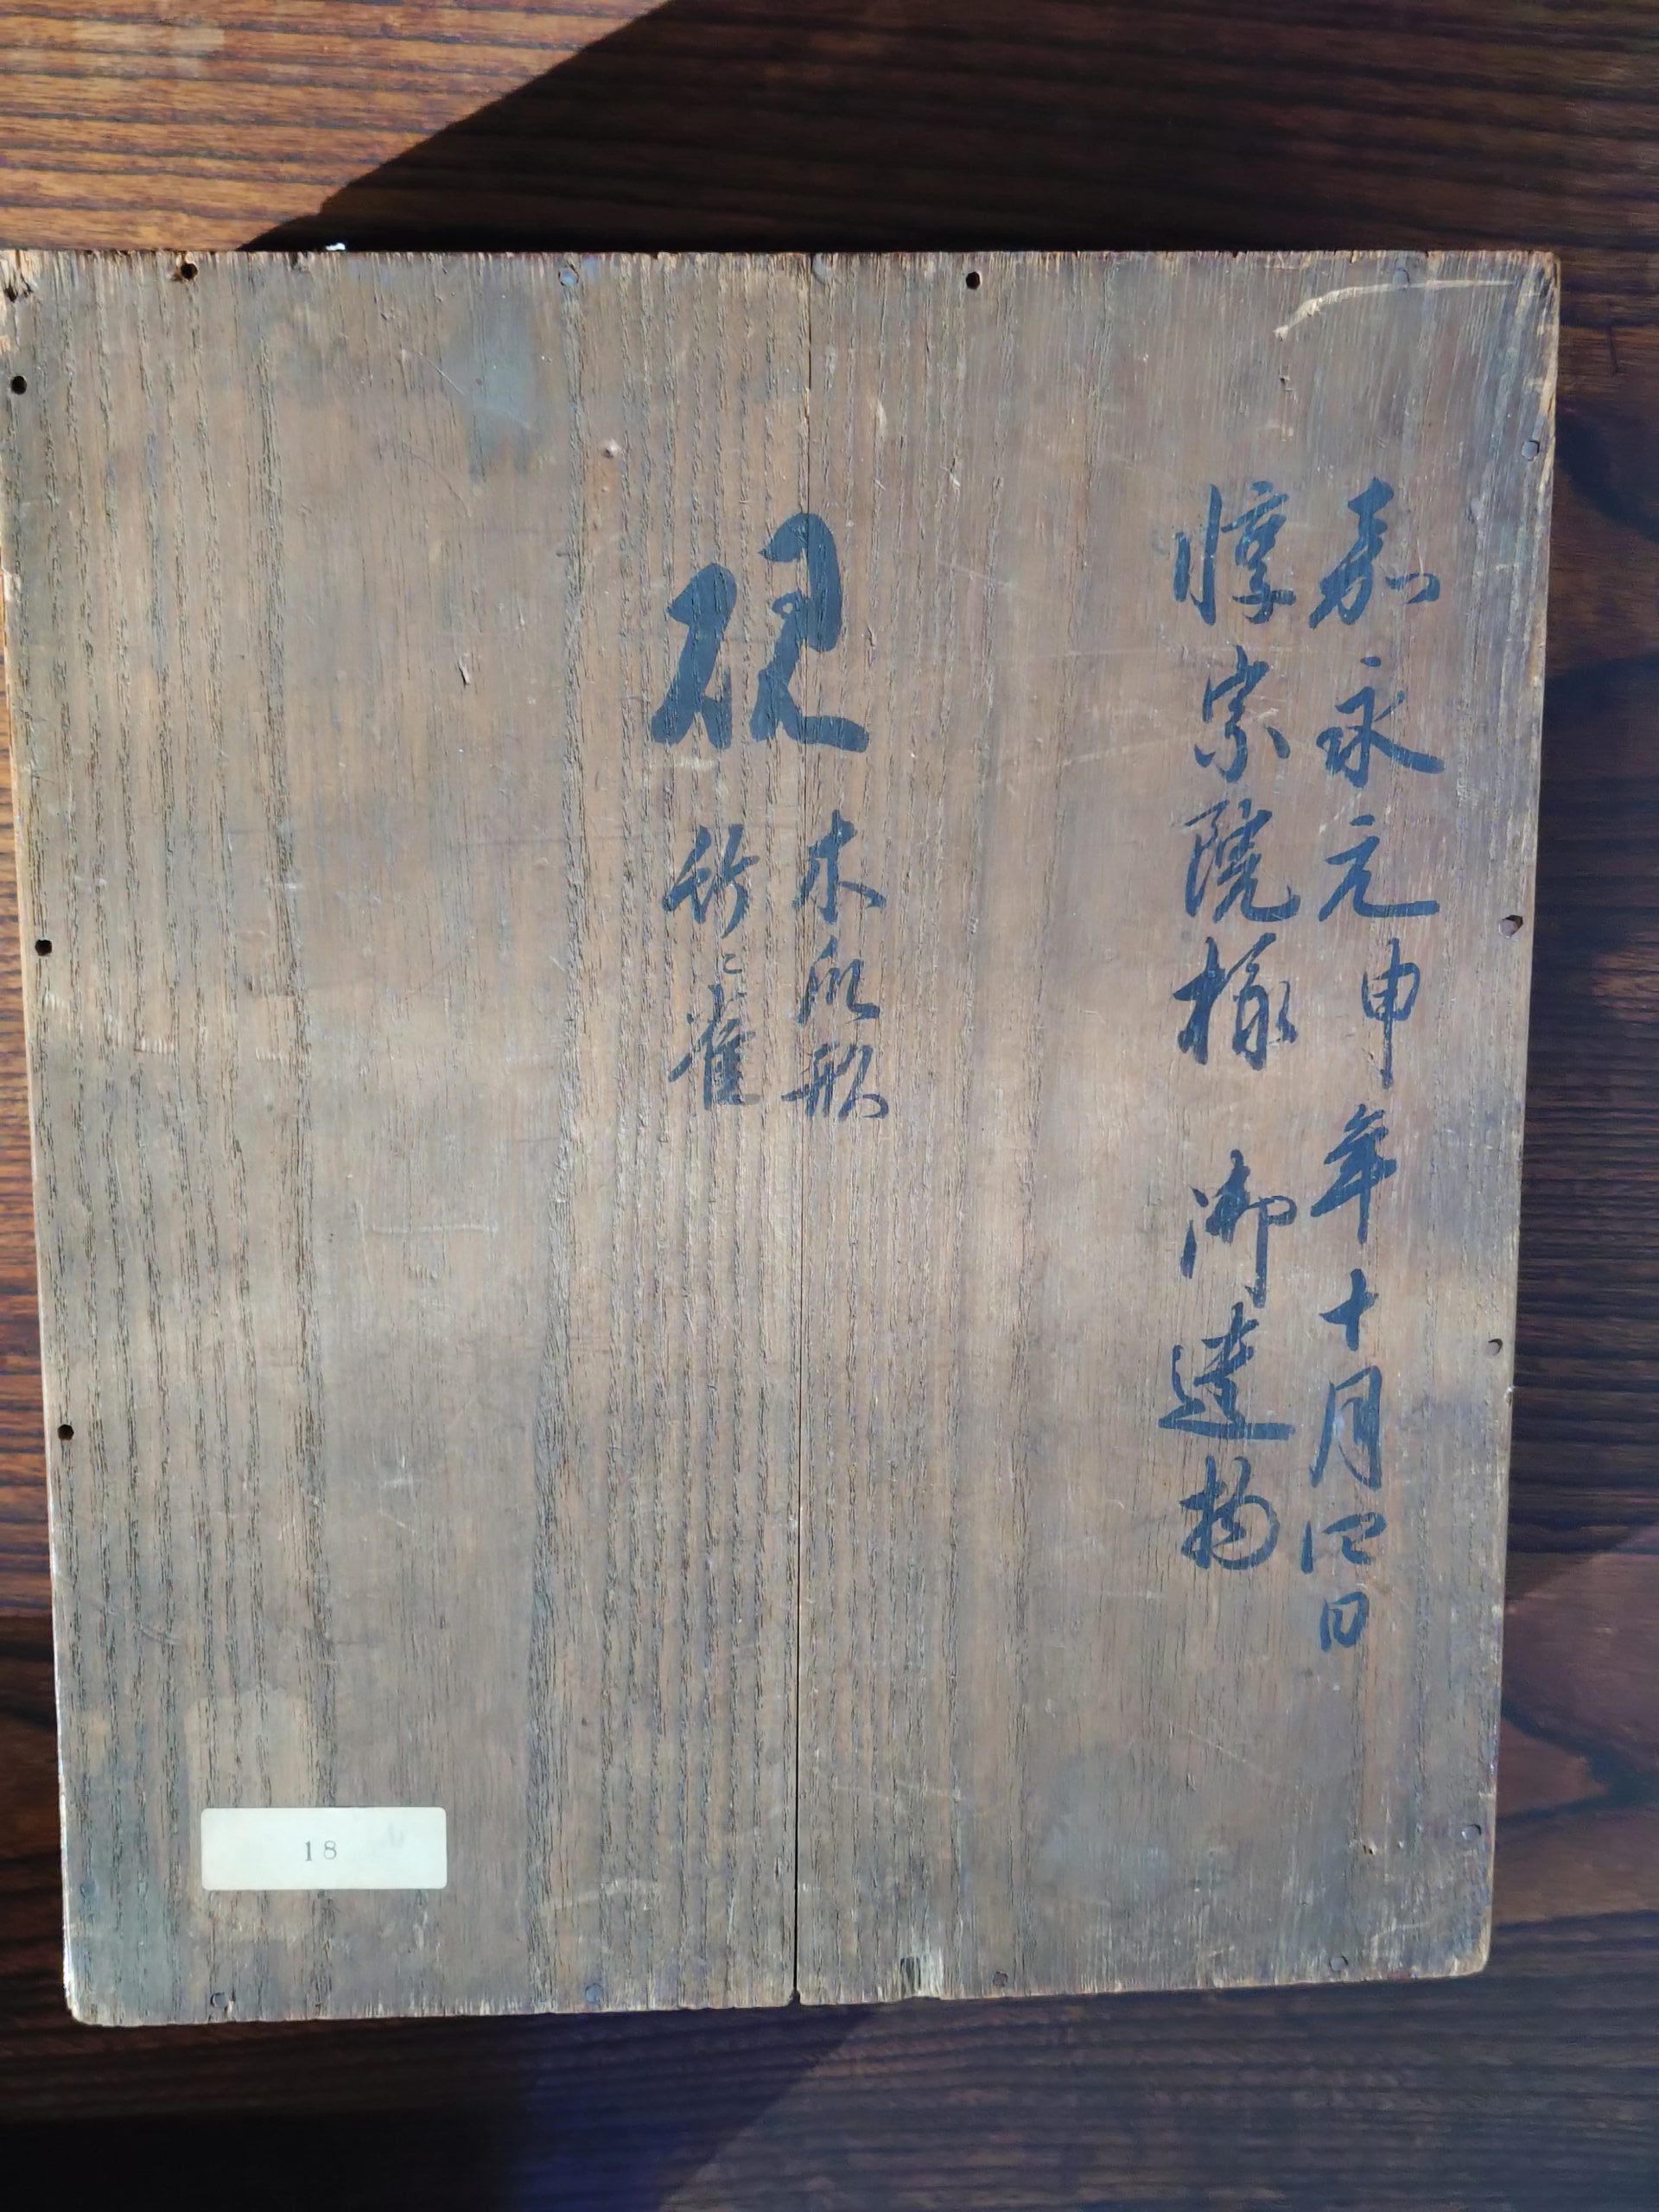 嘉永元申年十月四日
惇宗院様 御遺物
硯
木瓜形
竹ニ雀
18